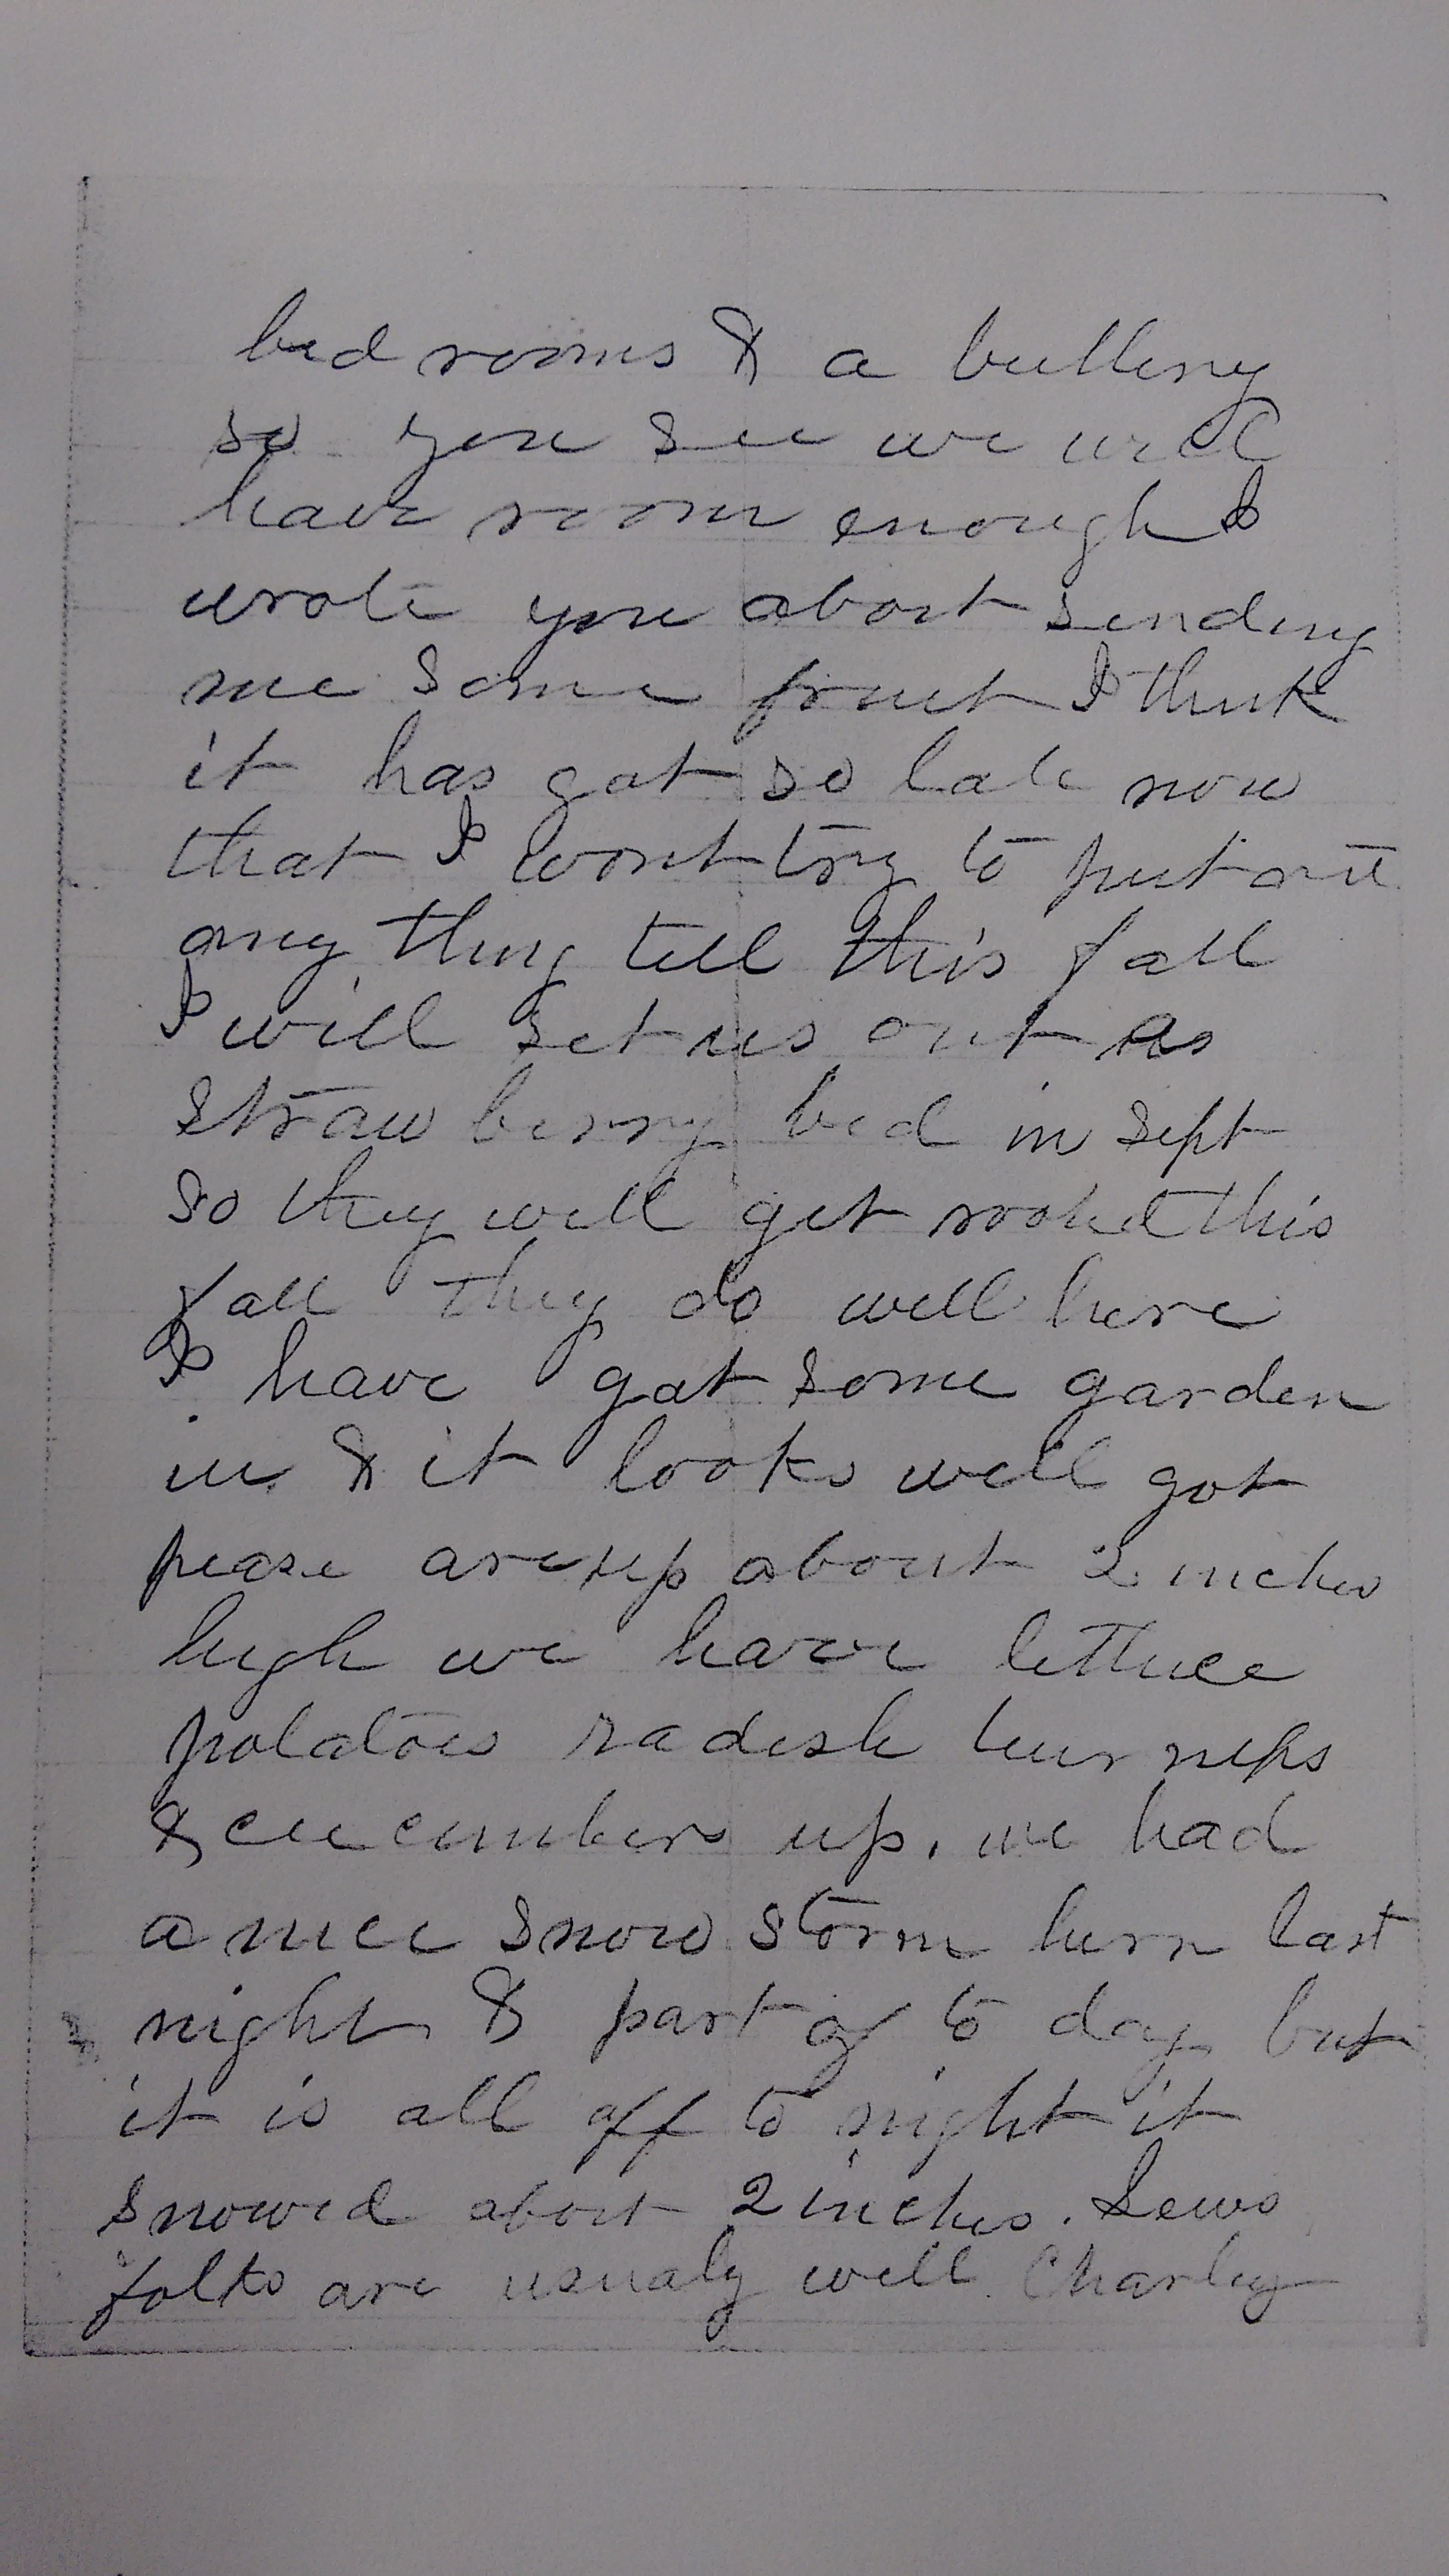 bed rooms & a buttery
so you see we will
have room enough I
wrote you about sending
me some fruit I think
it has got so late now
that I wont try to put out
any thing till this fall
I will set us out as
straw berry bed in Sept
so they will get rooted this
fall they do well here
I have got some garden
in & it looks well got
pease are up about 2 inches
high we have lettuce
potatoes radish turnips
& cucumbers up. we had
a nice snow storm here last
night & part of to day but
it is all off to night it
snowed about 2 inches. Lews
folks are usualy well Charley